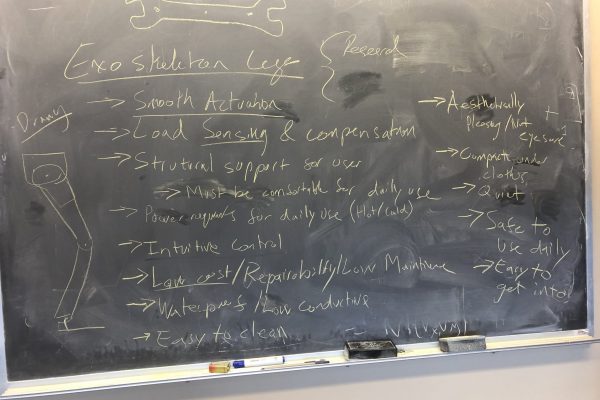 Exoskeleton Legs
Research
Drawing
→ Smooth Actuation
→ Load Sensing & compensation
→ Strutural support for user
→ Must be comfortable for daily use
→ Power requirements for daily use (Hot/cold)
→ Intuitive control
→ Low cost/Repairability/Low Maintenance
→ Waterproof/Low conductive
→ Easy to clean
→ Aesthetically
Pleasing/Not
eyesore
→ Compact under
clothes
→ Quiet
→ Safe to
use daily
→ Easy to
get into